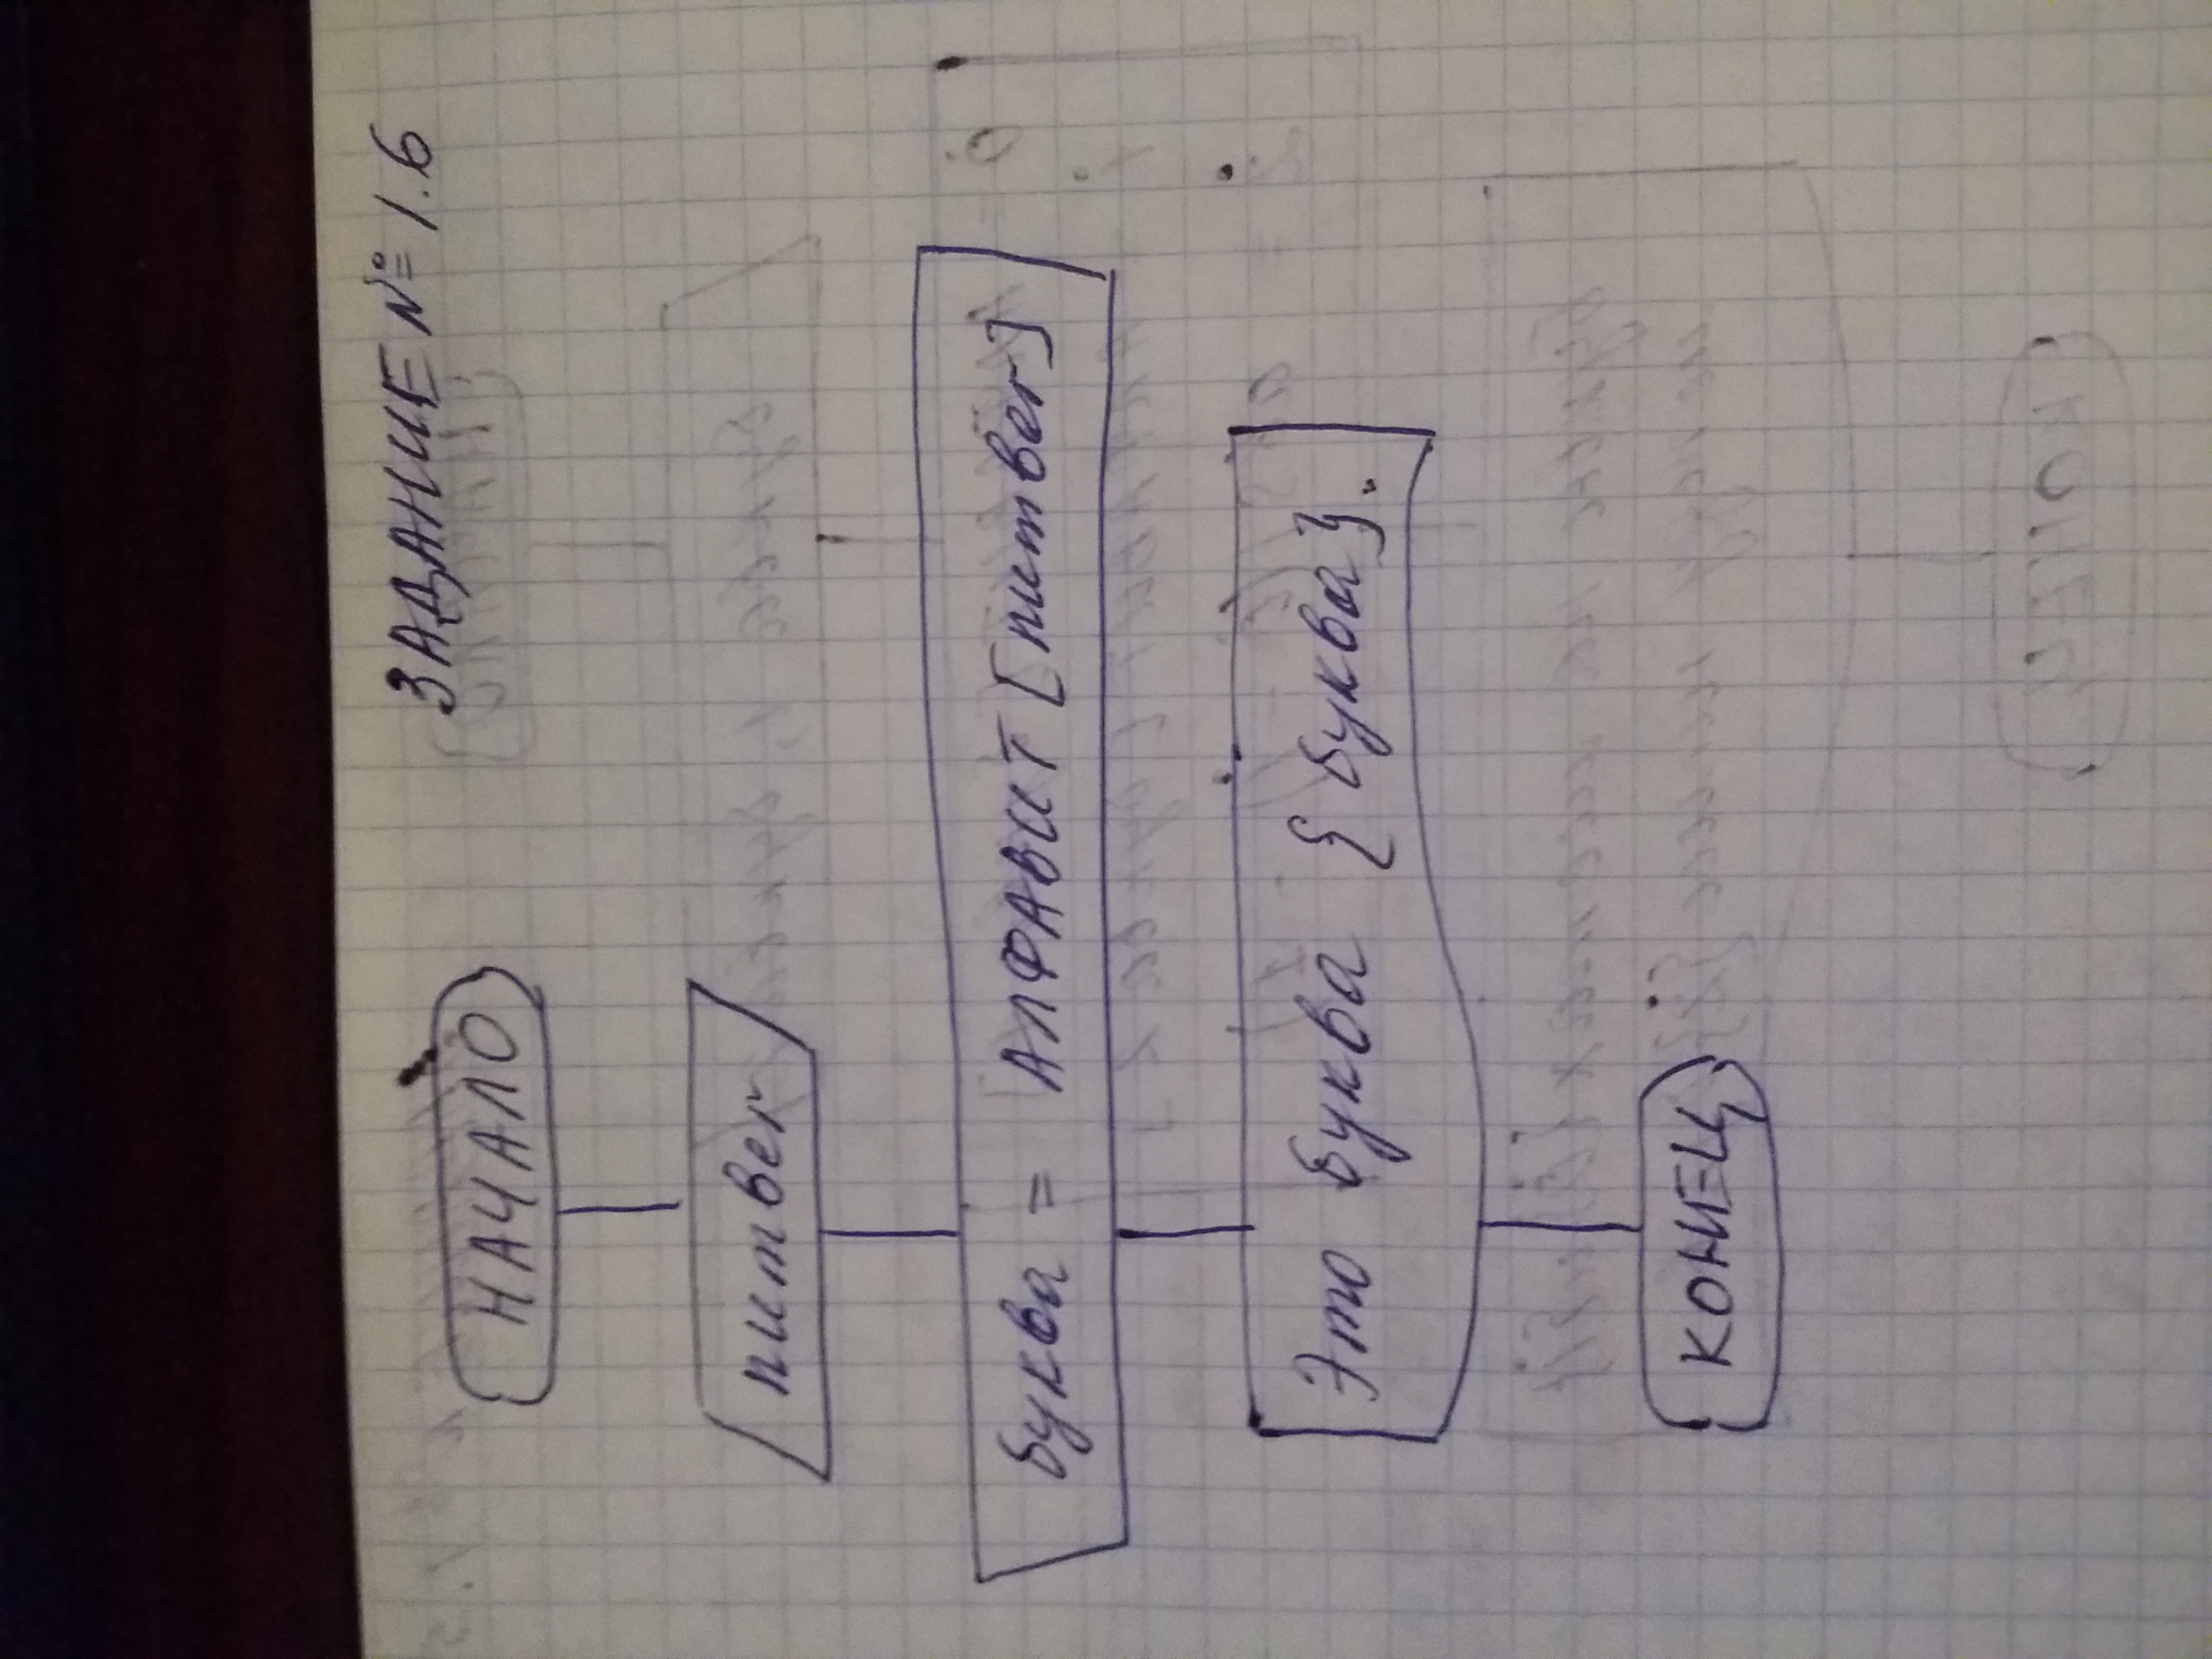 ЗАДАНИЕ № 1.6
НАЧАЛО
number
буква = АЛФАВИТ [number]
Это буква {буква}.
КОНЕЦ